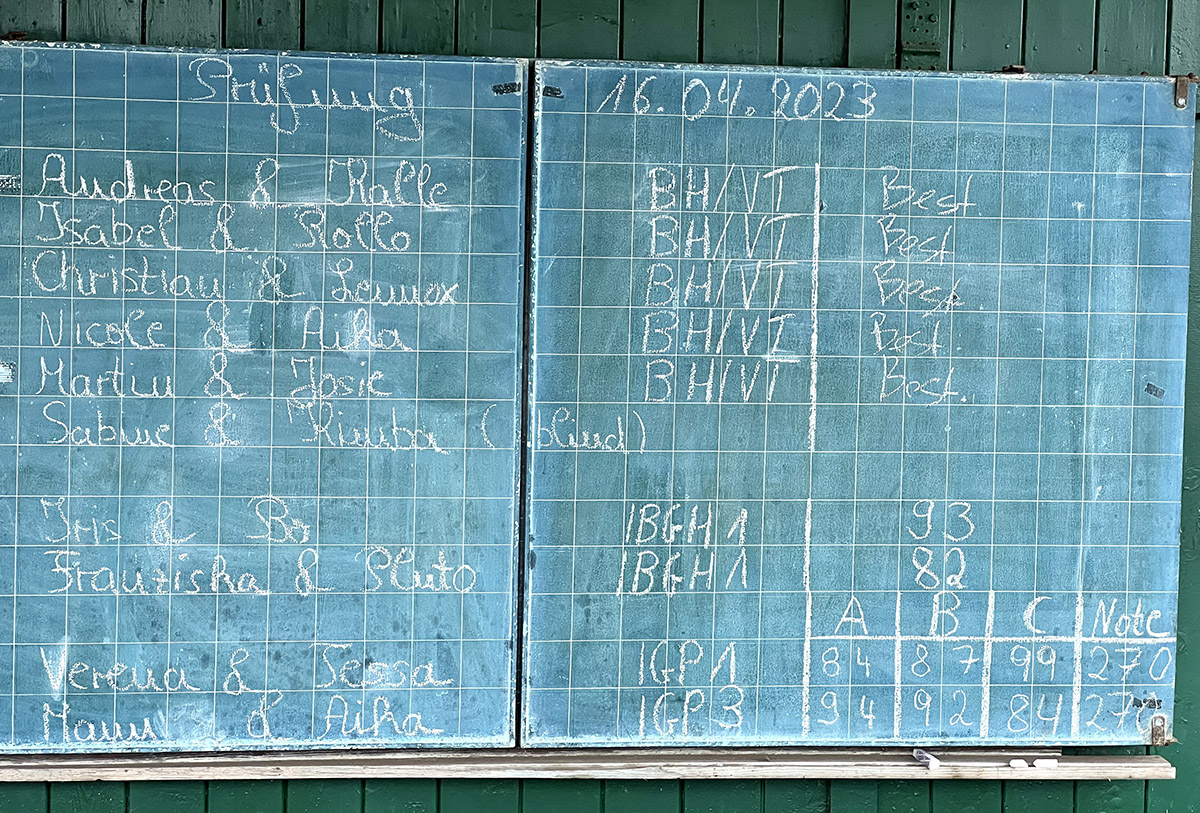 Prüfung 16.04.2023
Andreas & Kalle BH/VT Best.
Isabel & Rollo BH/VT Best
Christian & Lennox BH/VT Best.
Nicole & Aika BH/VT Best.
Martin & Josie BH/VT Best.
Sabine & Kimba (blind)
Iris & Bo IBGH 1 93
Franziska & Pluto IBGH 1 82
A B C Note
Verena & Tessa IGP 1 84 87 99 270
& Aika IGP 3 94 92 84 270